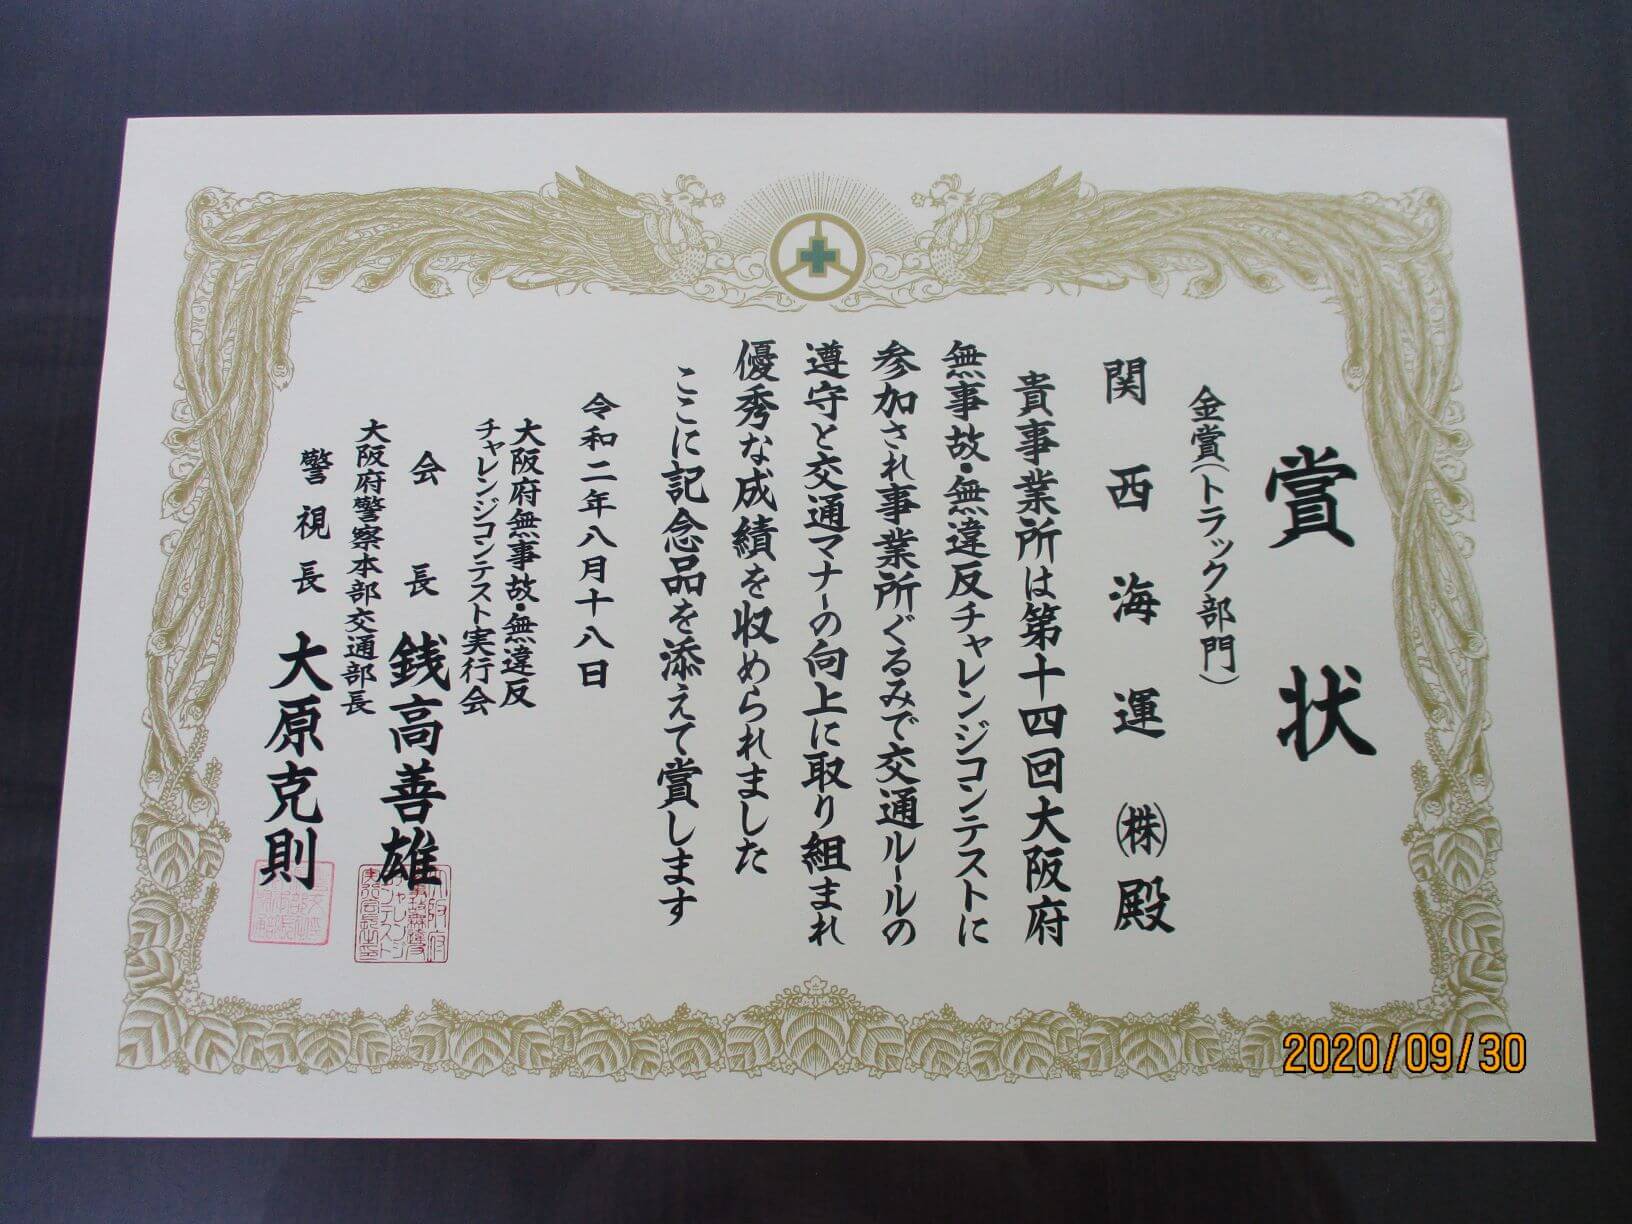 賞状
金賞(トラック部門)
関西海運(株)殿
貴事業所は第十四回大阪府
無事故・無違反チャレンジコンテストに
参加され事業所ぐるみで交通ルールの
遵守と交通マナーの向上に取り組まれ
優秀な成績を収められました
ここに記念品を添えて賞します
令和二年八月十八日
大阪府無事故・無違反
チャレンジコンテスト実行会
会長 銭高善雄
大阪府警察本部交通部長
警視長 大原克則
2020/09/30